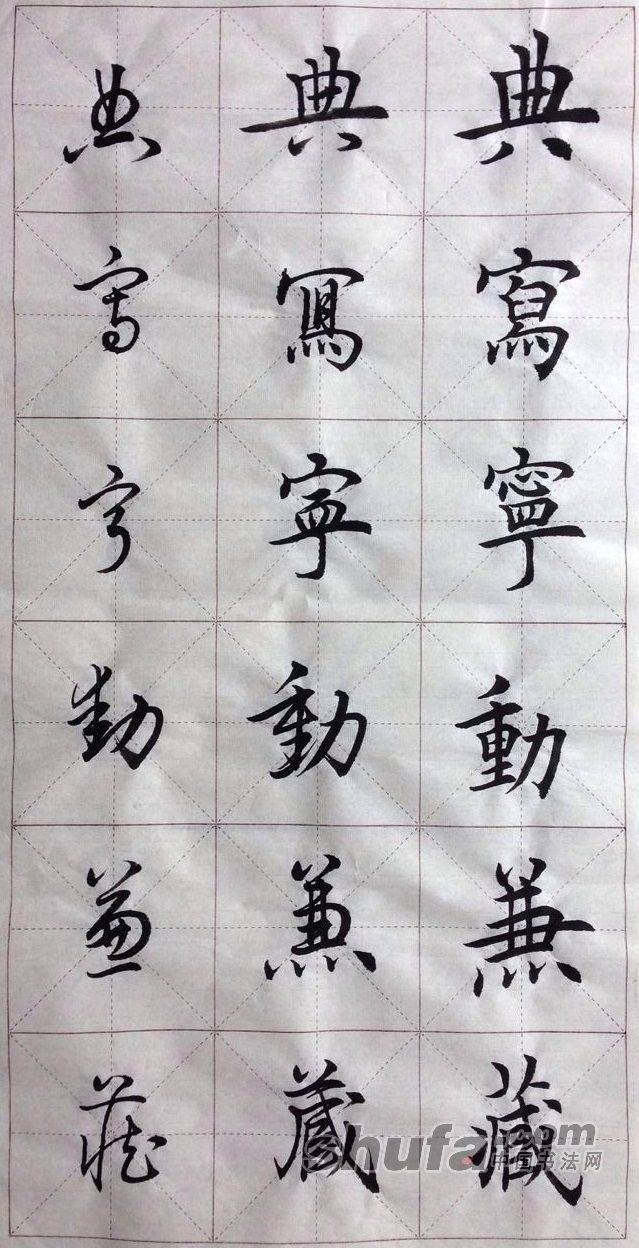 典 典 典
寫 寫 寫
寧 寧 寧
動 動 動
兼 兼 兼
藏 藏 藏
shufa.com
中国书法网